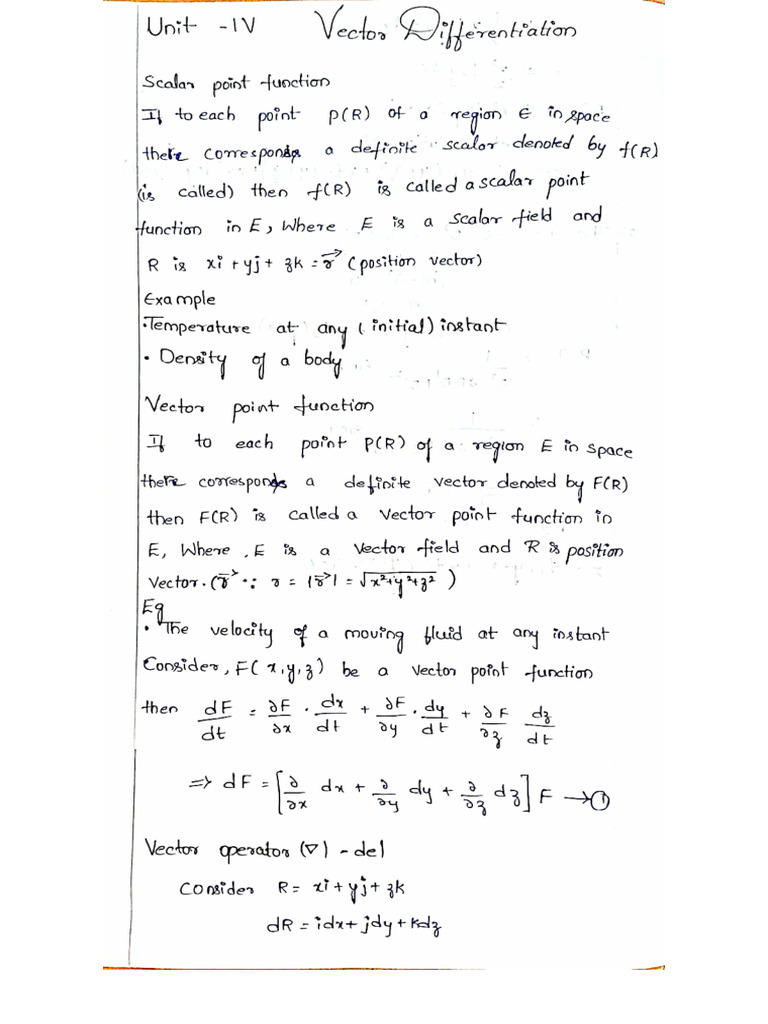 Unit -IV Vector Differentiation
Scalar point function
If to each point P(R) of a region E in space
there corresponds a definite scalar denoted by f(R)
(is called) then f(R) is called a scalar point
function in E, Where E is a scalar field and
R is xi + yj + zk = r⃗ (position vector)
Example
• Temperature at any (initial) instant
• Density of a body
Vector point function
If to each point P(R) of a region E in space
there corresponds a definite vector denoted by F(R)
then F(R) is called a vector point function in
E, Where E is a vector field and R is position
Vector. (r⃗ ∵ r = |r⃗| = √x²+y²+z² )
Eg
• The velocity of a moving fluid at any instant
Consider, F(x,y,z) be a vector point function
then dF/dt = ∂F/∂x . dx/dt + ∂F/∂y . dy/dt + ∂F/∂z dz/dt
=> dF = [∂/∂x dx + ∂/∂y dy + ∂/∂z dz] F → ①
Vector operator (∇) - del
Consider R = xi + yj + zk
dR = idx + jdy + kdz